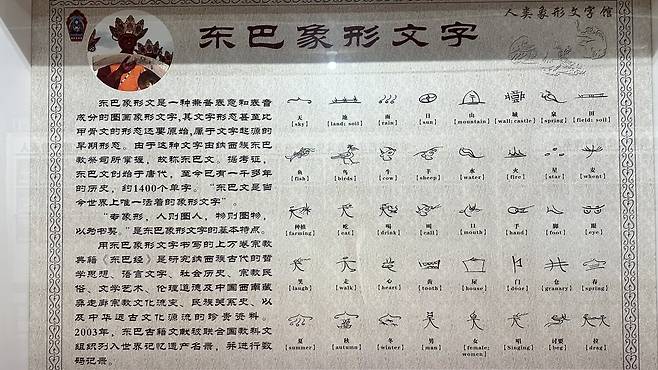 东巴象形文字
人类象形文字馆
东巴象形文是一种兼备表意和表音
成分的图画象形文字,其文字形态甚至比
甲骨文的形态还要原始,属于文字起源的
早期形态。由于这种文字由纳西族东巴
教祭司所掌握,故称东巴文。据考证,
东巴文创始于唐代,至今已有一千多年
的历史,约1400个单字。“东巴文是留
今世界上唯一活着的象形文字”。
“专象形,人则图人,物则图物,
以为书契。”是东巴象形文字的基本特点。
用东巴象形文字书写的上万卷宗教
典籍《东巴经》是研究纳西族古代的哲
学思想、语言文字、社会历史、宗教民
俗、文学艺术、伦理道德及中国西南藏
彝走廊宗教文化流变、民族关系史、以
及中华远古文化源流的珍贵资料。
2003年,东巴古籍文献被联合国教科文
组织列入世界记忆遗产名录,并进行数
码记录。
天 地 雨 日 山 城 泉 田
[sky] [land; soil] [rain] [sun] [mountain] [wall; castle] [spring] [field; soil]
鱼 鸟 牛 羊 水 火 星 麦
[fish] [birds] [cow] [sheep] [water] [fire] [star] [wheat]
种植 吃 喝 叫 口 手 脚 眼
[farming] [eat] [drink] [call] [mouth] [hand] [foot] [eye]
笑 走 心 齿 屋 门 仓 春
[laugh] [walk] [heart] [tooth] [house] [door] [granary] [spring]
夏 秋 冬 男 女 唱 讨要 拉
[summer] [autumn] [winter] [man] [female; women] [Singing] [beg] [drag]